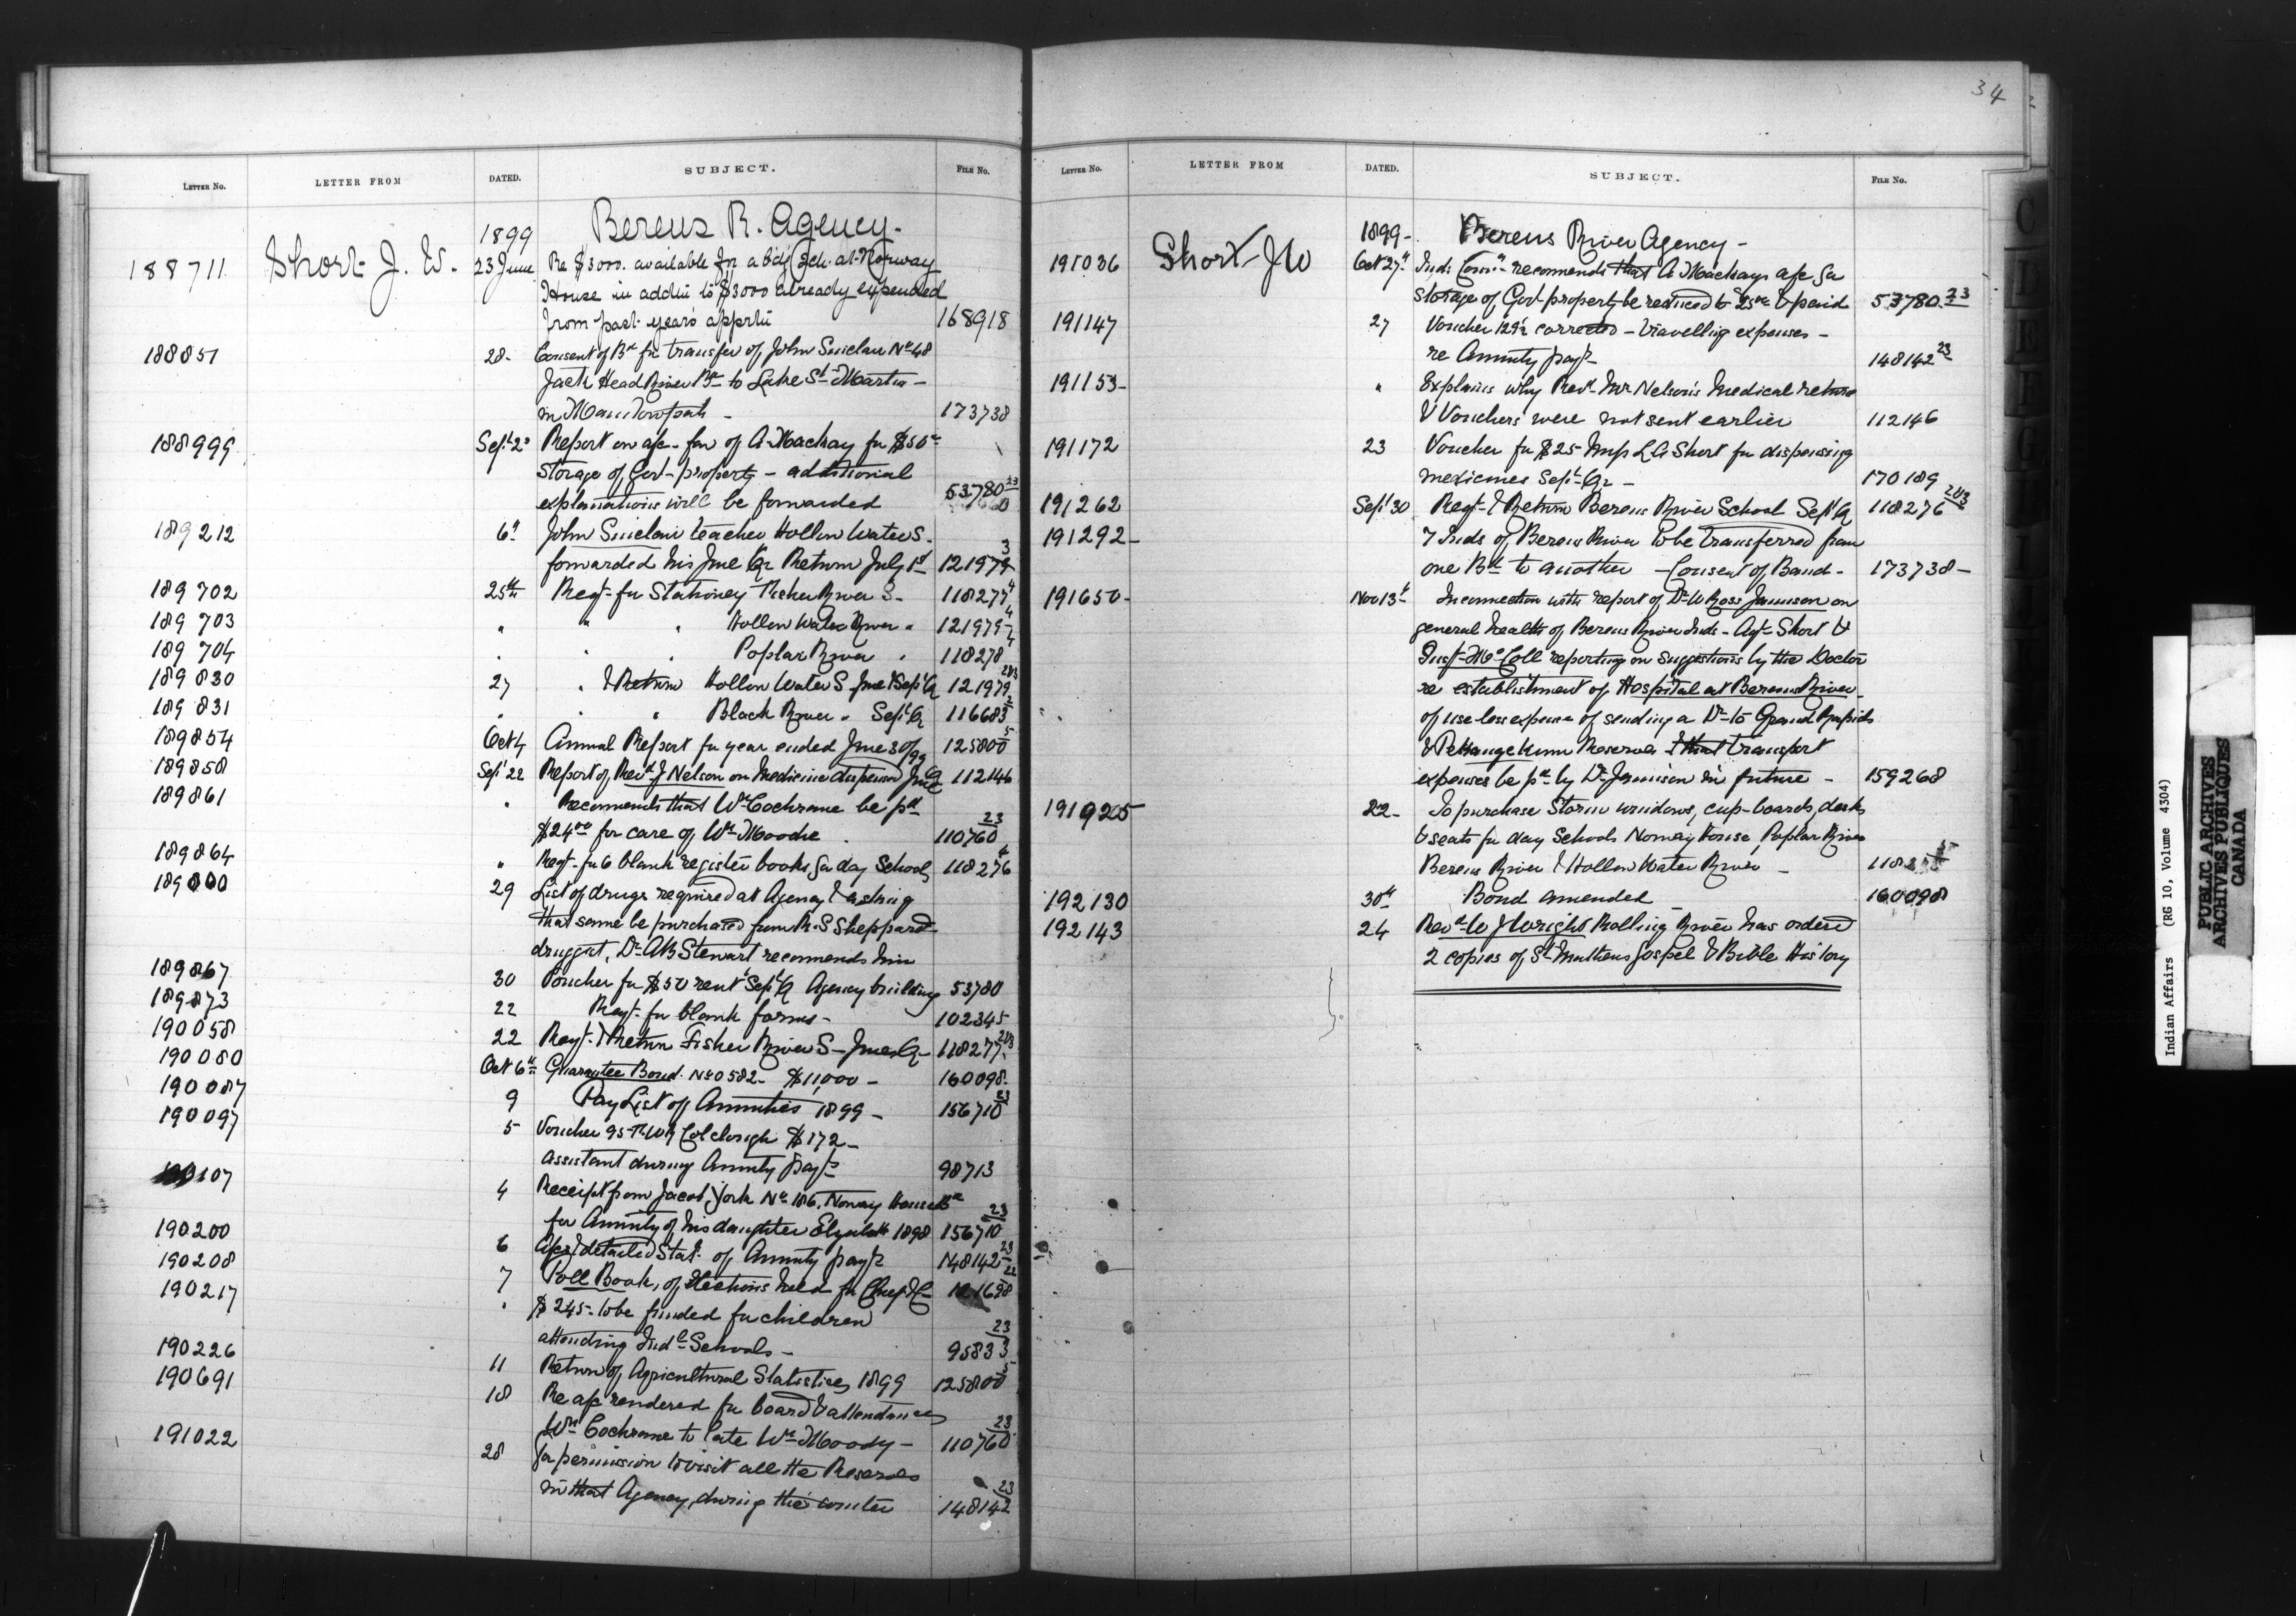 34
LETTER NO. LETTER FROM DATED. SUBJECT. FILE NO.
1899 Berens R. Agency.
188711 Short J. W. 23 June Re $3000. available for a bdg sch. at Norway
House in addtn to $3000 already expended
from past years apprtn 168918
188851 28- Consent of Bd for transfer of John Sinclair No 48
Jack Head River Bd to Lake St Martin -
in Manitowpah - 173738
188999 Sept 2d Report on a/c - fav of A. Mackay for $50-
Storage of Govt property - additional
explanations will be forwarded 53780 23
189212 6th John Sinclair teacher Hollow Water S.
forwarded his June Qr Return July 1st 121979 3
189702 25th Reqt for Stationey Fisher River S- 118277 4
189703 " " " Hollow Water River " 121979 4
189704 " " " Poplar River " 118278 4
189830 27 " & Return Hollow Water S June & Sept Q 121979 2&3
189831 " " " Black River " Sept Qr 116683 2
189854 Oct 4 Annual Report for year ended June 30/99 125800 5
189858 Sept 22 Report of Revd J Nelson on Medicine dispensed June Q 112146
189861 " Recommends that Wm Cochrane be pd
$24.00 for care of Wm Moodie. 110760 23
189864 " Reqt for 6 blank register books for day Schools 118276 4
29 List of drugs required at Agency & asking
that same be purchased from R. S Sheppard
druggist, Dr AB Stewart recommends him
189867 30 Voucher for $50 rent Sept Q Agency building 53780
189873 22 Reqt for blank forms - 102345
190058 22 Reqt & Return Fisher River S - June Qr 118277 2&3
190080 Oct 6th Guarantee Bond. No 0582- $11,000 - 160098
190087 9 Pay List of Annuities 1899 - 156710 23
190097 5 Voucher 95 Colclough $172 -
assistant during Annuity payts 98713
190107 4 Receipt from Jacob York No 186, Norway House Bd
for Annuity of his daughter Elizabeth 1898 156710 23
190200 6 a/c & detailed Stat. of Annuity payts 148142 23
190208 7 Poll Book, of Elections held for Chief & C 22
190217 " $245- to be funded for children
attending Indl Schools - 95833 23
190226 11 Return of Agricultural Statistics 1899 125800 5
190691 18 Re a/c rendered for board & attendances
Wm Cochrane to late Wm Moody - 110760 23
191022 28 for permission to visit all the Reserves
in that Agency, during the winter 148142 23
LETTER NO. LETTER FROM DATED. SUBJECT. FILE NO.
1899- Berens River Agency -
191036 Short J W Oct 27th Ind. Comr recommends that A Mackays a/c for
storage of Govt property be reduced to $25.00 & paid 53780 23
191147 27 Voucher 129½ corrected - travelling expenses -
re Annuity payts 148142 23
191153- " Explains why Revd Mr Nelson's Medical return
& Vouchers were not sent earlier 112146
191172 23 Voucher for $25 Short for dispensing
medicines Sept Qr - 170189
191262 Sept 30 Reqt & Return Berens River School Sept Q 118276 2&3
191292- 7 Inds of Berens River to be transferred from
one Bd to another - Consent of Band - 173738-
191650- Nov 13th In connection with report of Dr W Ross Jamieson on
general health of Berens River Inds - Agt Short &
Inspt McColl reporting on suggestions by the Doctor
re establishment of Hospital at Berens River -
of useless expense of sending a Dr to Grand Rapids
& Pekangekum Reserves & that transport
expenses be pd by Dr Jamieson in future - 159268
191925 22- To purchase Storm windows, cup-boards, desks
& seats for day Schools Norway House, Poplar River
Berens River & Hollow Water River -
192130 30th Bond amended - 160098
192143 24 Revd W J Wright Rolling River has ordered
2 copies of St Mathews Gospel & Bible History
Indian Affairs (RG 10, Volume 4304)
PUBLIC ARCHIVES
ARCHIVES PUBLIQUES
CANADA